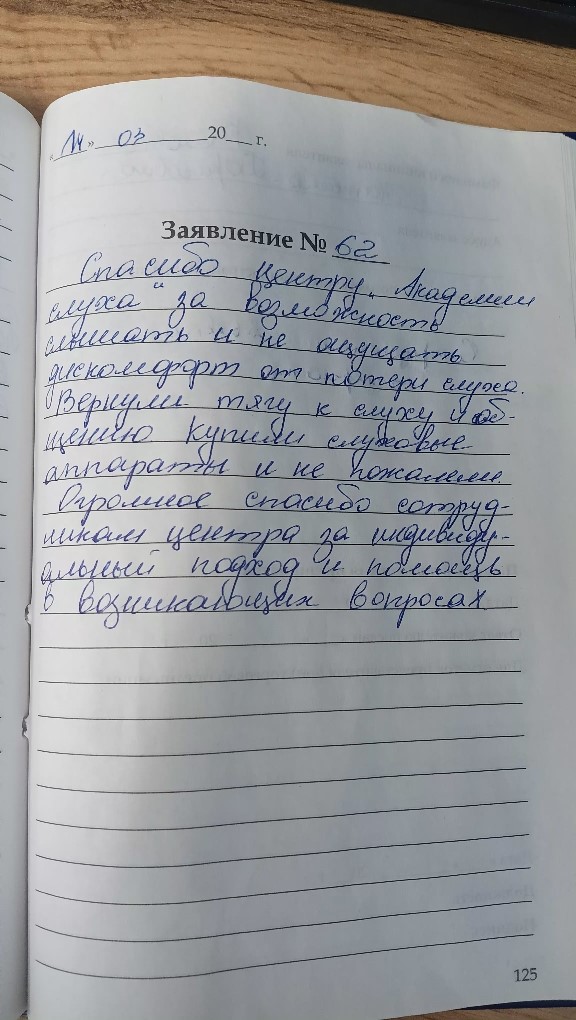 «14» 03 20 г.
Заявление № 62
Спасибо центру „Академии
слуха" за возможность
слышать и не ощущать
дискомфорт от потери слуха.
Вернули тягу к слуху и об-
щению купили слуховые
аппараты и не пожалели.
Огромное спасибо сотруд-
никам центра за индивиду-
альный подход и помощь
в возникающих вопросах
125